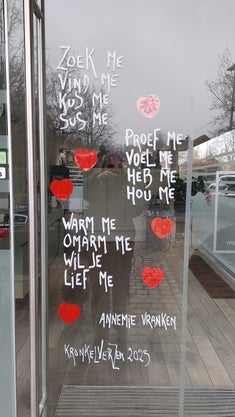 ZOEK ME
VIND ME
KUS ME
SUS ME
PROEF ME
VOEL ME
HEB ME
HOU ME
WARM ME
OMARM ME
WIL JE
LIEF ME
ANNEMIE VRANKEN
KRONKELVERZEN 2025